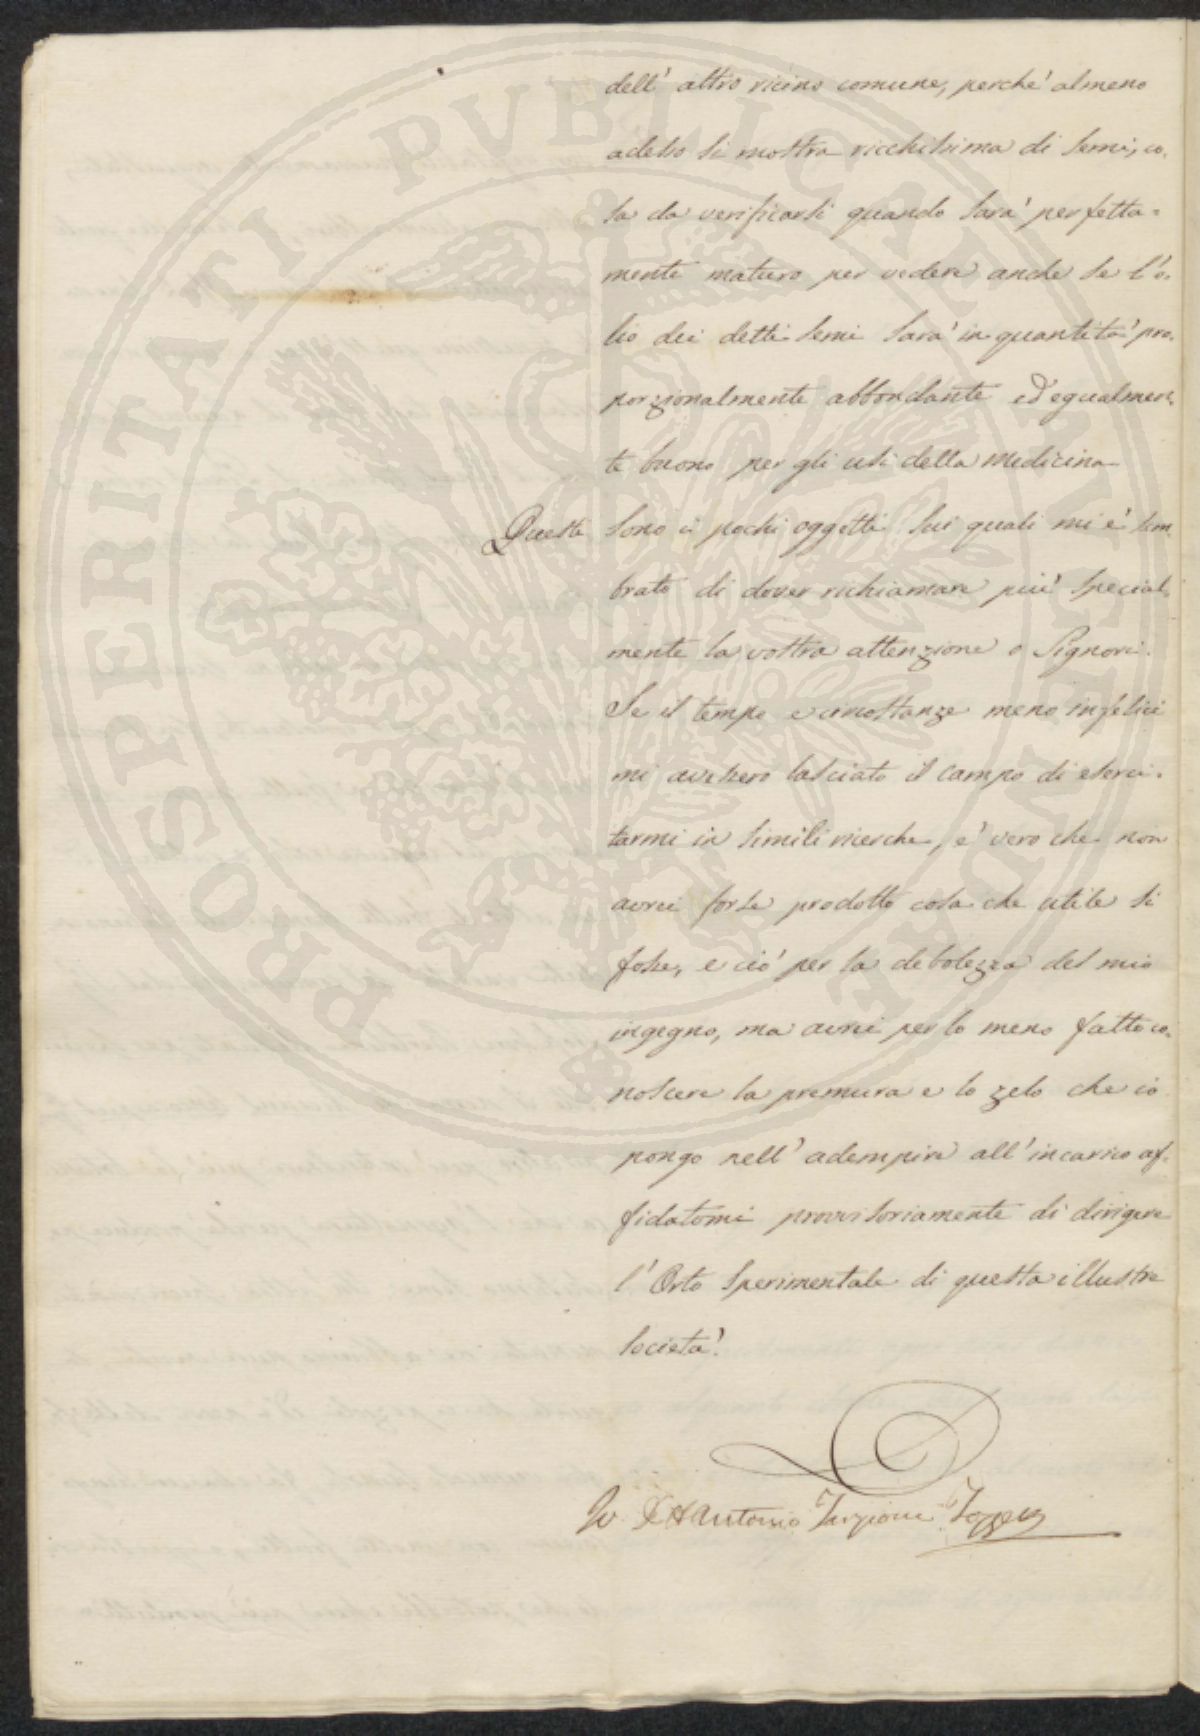 dell' altro ricino comune, perche' almeno
adesso si mostra ricchissima di semi, co-
sa da verificarsi quando sara' perfetta-
mente maturo per vedere anche se l'o-
lio dei detti semi sara' in quantita' pro-
porzionalmente abbondante ed egualmen-
te buono per gli usi della medicina
Questi sono i pochi oggetti sui quali mi e' sem-
brato di dover richiamare piu' special-
mente la vostra attenzione o Signori.
Se il tempo e circostanze meno infelici
mi avessero lasciato il campo di eserci-
tarmi in simili ricerche, e' vero che non
avrei forse prodotto cosa che utile si
fosse, e cio' per la debolezza del mio
ingegno, ma avrei per lo meno fatto co-
noscere la premura e lo zelo che io
pongo nell' adempire all' incarico af-
fidatomi provvisoriamente di dirigere
l' Orto Sperimentale di questa illustre
Societa'.
Antonio Targioni Tozzetti
PROSPERITATI PUBLICAE AUGENDAE